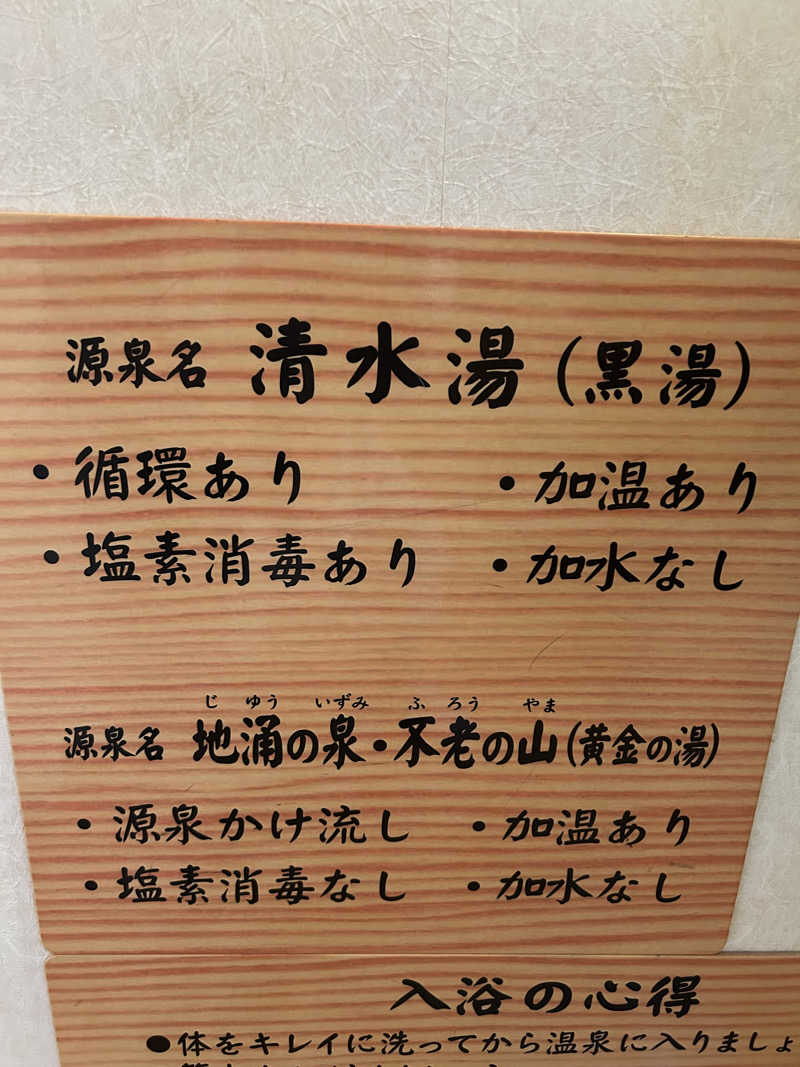 源泉名 清水湯(黒湯)
・循環あり ・加温あり
・塩素消毒あり ・加水なし
じ ゆう いずみ ふ ろう やま
源泉名 地涌の泉・不老の山(黄金の湯)
・源泉かけ流し ・加温あり
・塩素消毒なし ・加水なし
入浴の心得
●体をキレイに洗ってから温泉に入りましょ